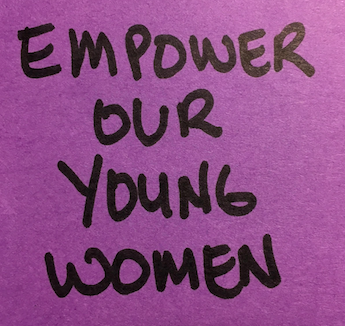 EMPOWER
OUR
YOUNG
WOMEN